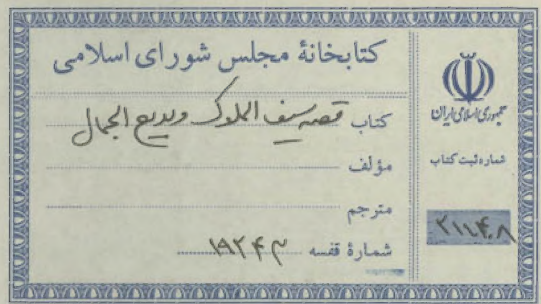 کتابخانهٔ مجلس شورای اسلامی
کتاب قصه سیف الملوک و بدیع الجمال
مؤلف
مترجم
شمارهٔ قفسه ۱۹۲۴۳
جمهوری اسلامی ایران
شماره ثبت کتاب
۲۱۱۴۰۸